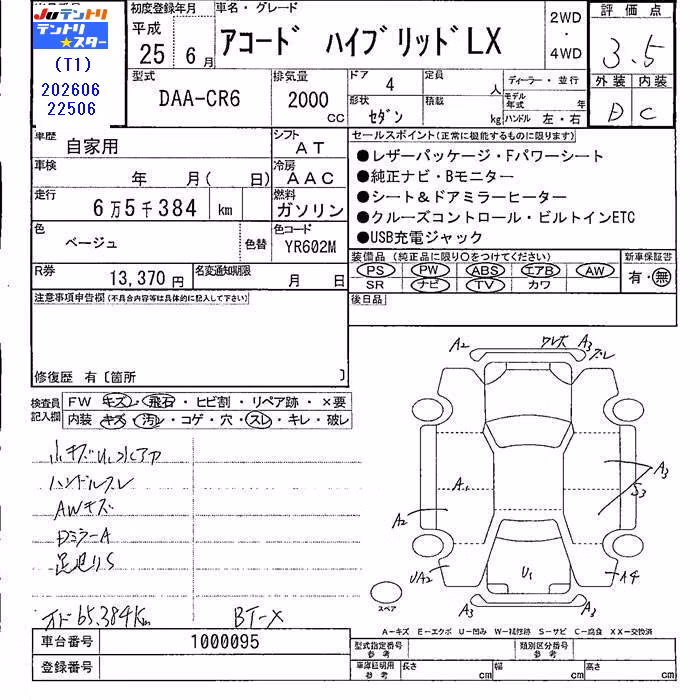 Juテントリ
テントリ
★スター
(T1)
202606
22506
初度登録年月
平成
25年 6月
車名・グレード
アコード ハイブリッドLX
2WD
・
4WD
評価点
3.5
外装 内装
D C
型式
DAA-CR6
排気量
2000
cc
ドア 4
形状 セダン
定員 人
積載 kg
ディーラー・並行
モデル年式 年
ハンドル 左・右
車歴 自家用
シフト AT
車検 年 月( 日)
冷房 AAC
走行 6万5千384 km
燃料 ガソリン
色 ベージュ
色替
色コード YR602M
R券 13,370円
名変通知期限 月 日
セールスポイント(正常に機能するものに限ります)
●レザーパッケージ・Fパワーシート
●純正ナビ・Bモニター
●シート&ドアミラーヒーター
●クルーズコントロール・ビルトインETC
●USB充電ジャック
装備品(純正品に限り○をつけてください)
PS PW ABS エアB AW
SR ナビ TV カワ
新車保証書
有・無
後日品
注意事項申告欄(不具合内容等は具体的に記入して下さい)
修復歴 有〔箇所 〕
検査員記入欄
FW キズ・飛石・ヒビ割・リペア跡・×要
内装 キズ・汚レ・コゲ・穴・スレ・キレ・破レ
ハンドルスレ
AWキズ
DミラーA
足廻りS
オド65.384Km
BT-X
A2
ワレズ
A3
ズレ
A1
A2
A3
S3
UA2
U1
A4
A3
A3
スペア
A-キズ E-エクボ U-凹み W-補修跡 S-サビ C-腐食 XX-交換済
車台番号 1000095
登録番号
型式指定番号 参考
類別区分番号 参考
車庫証明用 参考
長さ cm
幅 cm
高さ cm